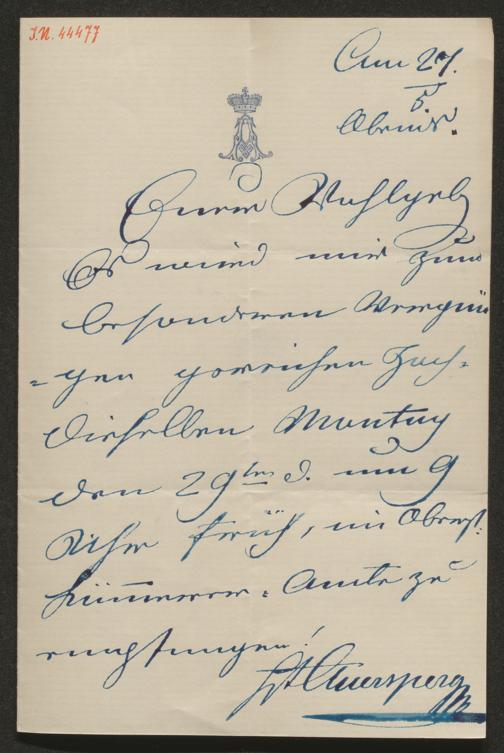 I.N. 44477
Am 27.
5.
Abends.
Euer Wohlgeb
Es wird mir zum
besonderen Vergnü
=gen gereichen Hoch=
dieselben Montag
den 29ten d. um 9
Uhr früh, im Oberst=
kämmerer=Amte zu
empfangen!
Auersperg